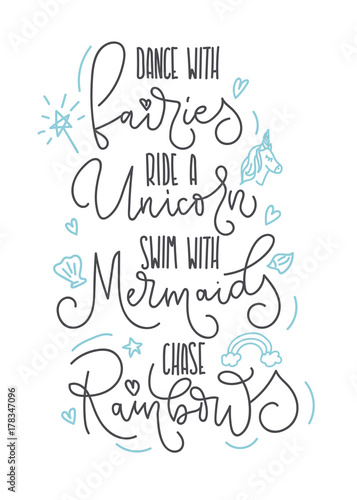 DANCE WITH
fairies
RIDE A
Unicorn
SWIM WITH
Mermaids
CHASE
Rainbows
Adobe Stock | #178347096